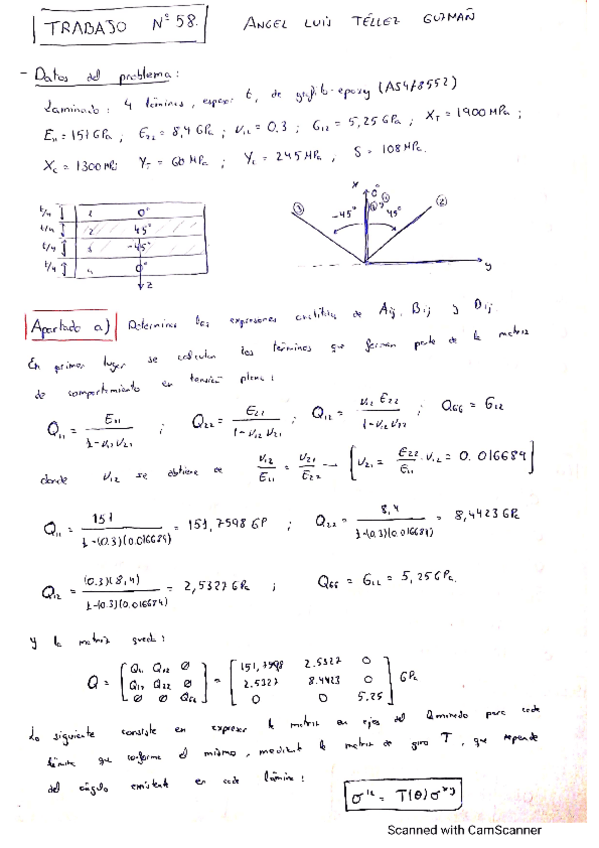 TRABAJO Nº 58. ANGEL LUIS TÉLLEZ GUZMÁN
- Datos del problema:
Laminado: 4 láminas, espesor t, de grafito-epoxy (AS4/8552)
E₁₁ = 151 GPa ; E₂₂ = 8,4 GPa ; ν₁₂ = 0.3 ; G₁₂ = 5,25 GPa ; X_T = 1900 MPa ;
X_C = 1300 MPa Y_T = 60 MPa ; Y_C = 245 MPa , S = 108 MPa.
t/4 1 0°
t/4 2 45°
t/4 3 -45°
t/4 4 0°
z
x 0° -45° 45° y
Apartado a) Determinar las expresiones analíticas de Aij, Bij y Dij.
En primer lugar se calculan los términos que forman parte de la matriz
de comportamiento en tensión plana:
Q₁₁ = E₁₁ / 1-ν₁₂ν₂₁ ; Q₂₂ = E₂₂ / 1-ν₁₂ν₂₁ ; Q₁₂ = ν₁₂ E₂₂ / 1-ν₁₂ν₂₁ ; Q₆₆ = G₁₂
donde ν₁₂ se obtiene de ν₁₂/E₁₁ = ν₂₁/E₂₂ → [ν₂₁ = E₂₂/E₁₁ · ν₁₂ = 0.016689]
Q₁₁ = 151 / 1-(0.3)(0.016689) = 151,7598 GP ; Q₂₂ = 8,4 / 1-(0.3)(0.016689) = 8,4423 GPa
Q₁₂ = (0.3)(8,4) / 1-(0.3)(0.016674) = 2,5327 GPa ; Q₆₆ = G₁₂ = 5,25 GPa.
y la matriz queda:
Q = [Q₁₁ Q₁₂ Ø; Q₁₂ Q₂₂ Ø; Ø Ø Q₆₆] = [151,7598 2.5327 0; 2.5327 8.4423 0; 0 0 5.25] GPa
Lo siguiente consiste en expresar la matriz en ejes del laminado para cada
lámina que conforma el mismo, mediante la matriz de giro T, que depende
del ángulo existente en cada lámina:
σ¹² = T(θ)σˣʸ
Scanned with CamScanner